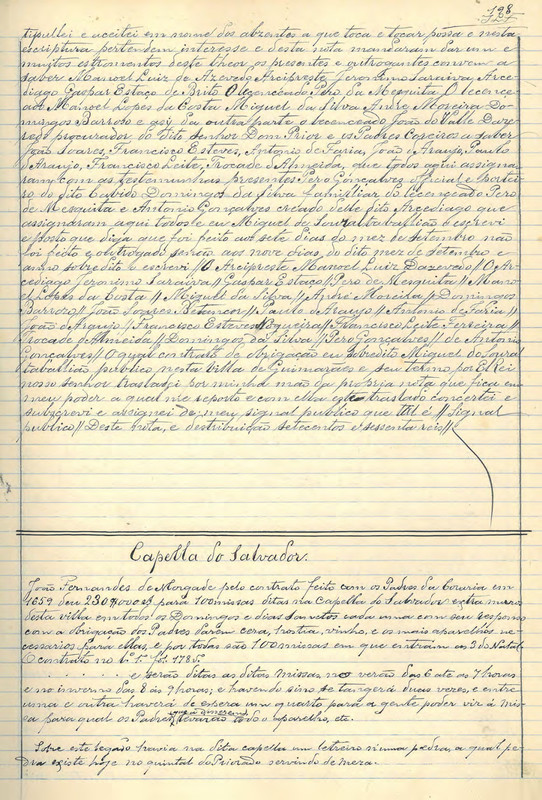 198
tipullei e aceitei em nome dos abzentes a que toca e tocar possa e nesta
escriptura pertendem interesse e desta nota mandaram dar um e
muitos estromentos deste theor os presentes e outrogantes convem a
saber Manoel Luiz de Azevedo Arcipreste Jeronimo Saraiva, Arce-
diago Gaspar Estaço de Brito O lecenceado Pero da Mesquita O lecence-
ado Manoel Lopes da Costa Miguel da Silva André Moreira Do-
mingos Barroso e da outra parte o lecenceado João do Valle
procurador do dito Senhor Dom Prior e os Padres Coreiros a saber
João Soares, Francisco Esteves, Antonio de Faria, João d'Araujo, Paulo
d'Araujo, Francisco Leite, Rocade d'Almeida, que todos aqui assigna-
ram com as testemunhas presentes Pero Gonçalves official e portei-
ro do dito Cabido Domingos da Silva familliar do lecenceado Pero
de Mesquita e Antonio Gonçalves creado delle dito Arcediago que
assignaram aqui todos e eu Miguel do Soural taballião o escrevi
e posto que diga que foi feito aos sete dias do mez de setembro não
foi feito e outrogado senão aos nove dias do dito mez de setembro e
anno sobredito o escrevi // O Arcipreste Manoel Luiz d'Azevedo // O Ar-
cediago Jeronimo Saraiva // Gaspar Estaço // Pero de Mesquita // Mano-
el Lopes da Costa // Miguel da Silva // André Moreira // Domingos
Barrozo // João Soares Betancor // Paulo d'Araujo // Antonio de Faria //
João d'Araujo // Francisco Esteves Nogueira // Francisco Leite Ferreira //
Rocade d'Almeida // Domingos da Silva // Pero Gonçalves // de Antonio
Gonçalves // O qual contrato de obrigação eu sobredito Miguel do Soural
tabalião publico nesta Villa de Guimarães e seu termo por El Rei
nosso senhor trasladei por minha mão da propria nota que fica em
meu poder a qual me reporto e com ella este traslado concertei e
subscrevi e assignei de meu signal publico que tal é // Signal
publico // Desta nota, e destribuição setecentos e sessenta reis //
Capella do Salvador.
João Fernandes de Morgade pelo contrato feito com os Padres da Couraria em
1659 deu 230$000 rs para 100 missas ditas na Capella do Salvador extra muros
desta villa em todos os Domingos e dias Sanctos cada uma com seu responso
com a obrigação dos Padres darem cera, hostia, vinho, e os mais aparelhos ne-
cessarios para ellas, e por todas são 100 missas em que entram as 3 do Natal
O contrato no L. 1º fol. 178 v.
. . . . . . . . . e serão ditas as ditas missas, no verão das 6 até as 7 horas
e no inverno das 8 ás 9 horas, e havendo sino se tangerá duas vezes, e entre
uma e outra haverá de espera um quarto para a gente poder vir á mis-
sa para qual os Padres levarão todo o aparelho, etc.
Sobre este legado havia na dita capella um letreiro n'uma pedra, a qual pe-
dra existe hoje no quintal do Priorado servindo de meza.